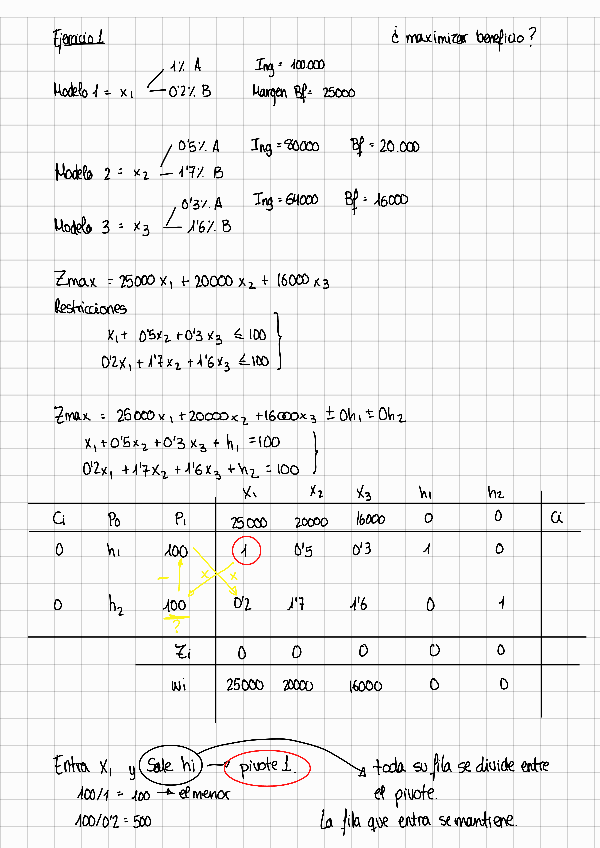 Ejercicio 1 ¿ maximizar beneficio ?
1% A Ing = 100.000
Modelo 1 = x₁ 0'2% B Margen Bf = 25000
0'5% A Ing = 80000 Bf = 20.000
Modelo 2 = x₂ 1'7% B
0'3% A Ing = 64000 Bf = 16000
Modelo 3 = x₃ 1'6% B
Zmax = 25000 x₁ + 20000 x₂ + 16000 x₃
Restricciones
x₁ + 0'5x₂ + 0'3 x₃ ≤ 100
0'2x₁ + 1'7x₂ + 1'6x₃ ≤ 100
Zmax = 25000x₁ + 20000x₂ + 16000x₃ ± 0h₁ ± 0h₂
x₁ + 0'5x₂ + 0'3 x₃ + h₁ = 100
0'2x₁ + 1'7x₂ + 1'6x₃ + h₂ = 100
x₁ x₂ x₃ h₁ h₂
Ci P₀ P₁ 25000 20000 16000 0 0 Ci
0 h₁ 100 1 0'5 0'3 1 0
- x x
0 h₂ 100 0'2 1'7 1'6 0 1
?
Zi 0 0 0 0 0
Wi 25000 20000 16000 0 0
Entra x₁ y Sale h₁ → pivote 1. toda su fila se divide entre
100/1 = 100 → el menor el pivote.
100/0'2 = 500 La fila que entra se mantiene.